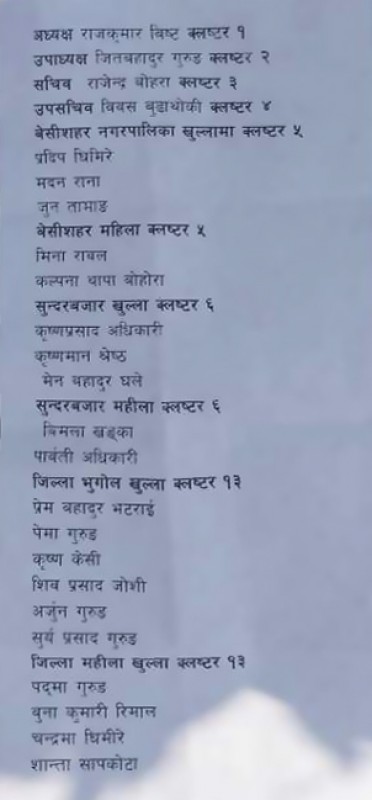 अध्यक्ष राजकुमार विष्ट क्लष्टर १
उपाध्यक्ष जितबहादुर गुरुङ क्लष्टर २
सचिव राजेन्द्र बोहरा क्लष्टर ३
उपसचिव विवस बुढाथोकी क्लष्टर ४
बेसीशहर नगरपालिका खुल्लामा क्लष्टर ५
प्रदिप घिमिरे
मदन राना
जुन तामाङ
बेसीशहर महिला क्लष्टर ५
मिना रावल
कल्पना थापा बोहोरा
सुन्दरबजार खुल्ला क्लष्टर ६
कृष्णप्रसाद अधिकारी
कृष्णमान श्रेष्ठ
मेन बहादुर घले
सुन्दरबजार महीला क्लष्टर ६
बिमला खड्का
पार्वती अधिकारी
जिल्ला भुगोल खुल्ला क्लष्टर १३
प्रेम बहादुर भटराई
पेमा गुरुङ
कृष्ण केसी
शिव प्रसाद जोशी
अर्जुन गुरुङ
सुर्य प्रसाद गुरुङ
जिल्ला महीला खुल्ला क्लष्टर १३
पद्मा गुरुङ
बुना कुमारी रिमाल
चन्द्रमा घिमीरे
शान्ता सापकोटा